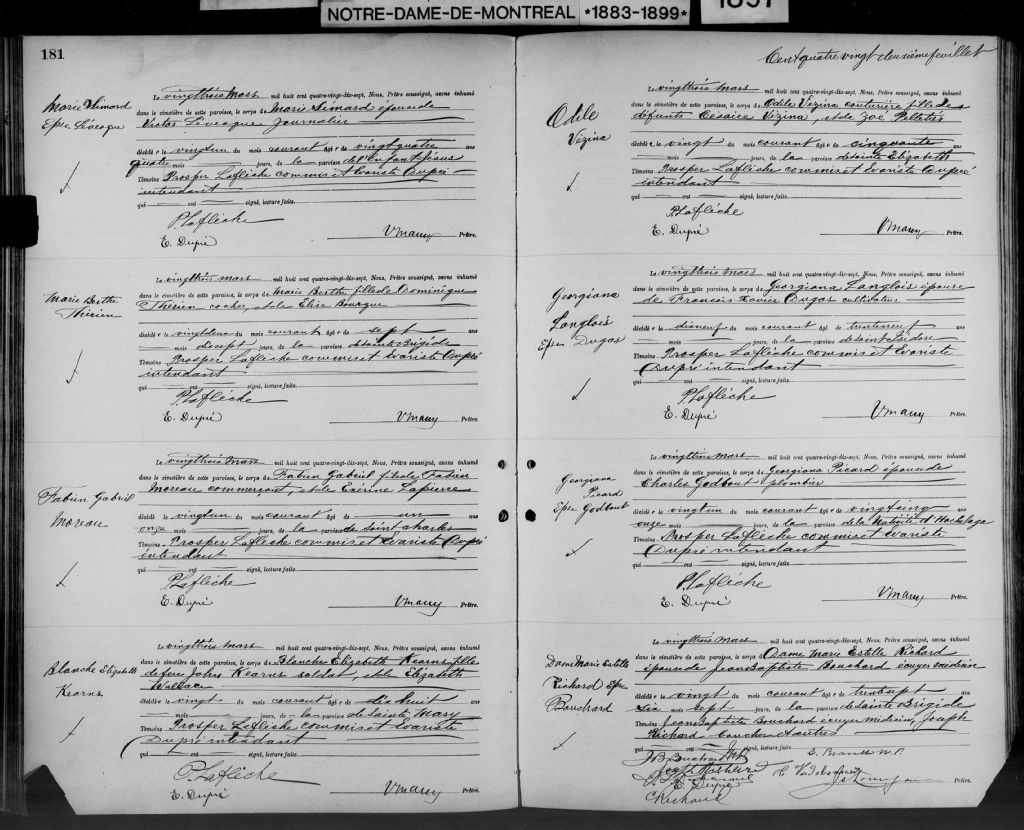 NOTRE-DAME-DE-MONTREAL *1883-1899*
1897
181
Marie Simard
Epse Lévesque
Le vingttrois mars mil huit cent quatre-vingt-dix-sept, Nous, Prêtre soussigné, avons inhumé
dans le cimetière de cette paroisse, le corps de Marie Simard épouse de
Victor Lévesque journalier
décédé e le vingtun du mois courant âgé e de vingtquatre ans
quatre mois — jours, de la paroisse de l'enfant Jésus
Témoins Prosper Laflèche commis et Evariste Dupré
intendant
qui — ont — signé, lecture faite.
P. Laflèche
E. Dupré
Prêtre.
Marie Berthe
Thérien
Le vingttrois mars mil huit cent quatre-vingt-dix-sept, Nous, Prêtre soussigné, avons inhumé
dans le cimetière de cette paroisse, le corps de Marie Berthe fille de Dominique
Thérien cocher, et de Eliza Bourque
décédé e le vingtdeux du mois courant âgé e de sept ans
— mois dixsept jours, de la paroisse de sainte Brigide
Témoins Prosper Laflèche commis et Evariste Dupré
intendant
qui — ont — signé, lecture faite.
P. Laflèche
E. Dupré
Prêtre.
Fabien Gabriel
Moreau
Le vingttrois mars mil huit cent quatre-vingt-dix-sept, Nous, Prêtre soussigné, avons inhumé
dans le cimetière de cette paroisse, le corps de Fabien Gabriel fils de Fabien
Moreau commerçant, et de Exérine Lapierre
décédé le vingtun du mois courant âgé de un an
onze mois — jours, de la paroisse de saint Charles
Témoins Prosper Laflèche commis et Evariste Dupré
intendant
qui — ont — signé, lecture faite.
P. Laflèche
E. Dupré
Prêtre.
Blanche Elizabeth
Kearns
Le vingttrois mars mil huit cent quatre-vingt-dix-sept, Nous, Prêtre soussigné, avons inhumé
dans le cimetière de cette paroisse, le corps de Blanche Elizabeth Kearns fille
de feu John Kearns soldat, et de Elizabeth
Wallace
décédé e le vingt du mois courant âgé e de dix huit ans
— mois — jours, de la paroisse de sainte Mary
Témoins Prosper Laflèche commis et Evariste
Dupré intendant
qui — ont — signé, lecture faite.
P. Laflèche
E. Dupré
Prêtre.
Cent quatre vingt deuxième feuillet
Odile
Vézina
Le vingttrois mars mil huit cent quatre-vingt-dix-sept, Nous, Prêtre soussigné, avons inhumé
dans le cimetière de cette paroisse, le corps de Odile Vézina couturière fille des
défunts Césaire Vézina, et de Zoé Pelletier
décédé e le vingt du mois courant âgé e de cinquante ans
— mois — jours, de la paroisse de sainte Elizabeth
Témoins Prosper Laflèche commis et Evariste Dupré
intendant
qui — ont — signé, lecture faite.
P. Laflèche
E. Dupré
Prêtre.
Georgiana
Langlois
Epse Dugas
Le vingttrois mars mil huit cent quatre-vingt-dix-sept, Nous, Prêtre soussigné, avons inhumé
dans le cimetière de cette paroisse, le corps de Georgiana Langlois épouse
de Francois Xavier Dugas cultivateur
décédé e le dixneuf du mois courant âgé e de trenteneuf ans
— mois — jours, de la paroisse de saint Isidore
Témoins Prosper Laflèche commis et Evariste
Dupré intendant
qui — ont — signé, lecture faite.
P. Laflèche
E. Dupré
Prêtre.
Georgiana
Picard
Epse Godbout
Le vingttrois mars mil huit cent quatre-vingt-dix-sept, Nous, Prêtre soussigné, avons inhumé
dans le cimetière de cette paroisse, le corps de Georgiana Picard épouse de
Charles Godbout plombier
décédé e le vingtun du mois courant âgé e de vingtcinq ans
onze mois — jours, de la paroisse de la Nativité d'Hochelaga
Témoins Prosper Laflèche commis et Evariste
Dupré intendant
qui — ont — signé, lecture faite.
P. Laflèche
E. Dupré
Prêtre.
Dame Marie Estelle
Richard Epse
Bouchard
Le vingttrois mars mil huit cent quatre-vingt-dix-sept, Nous, Prêtre soussigné, avons inhumé
dans le cimetière de cette paroisse, le corps de Dame Marie Estelle Richard
épouse de Jean Baptiste Bouchard écuyer médecin
décédé e le vingt du mois courant âgé e de trentesept ans
six mois sept jours, de la paroisse de sainte Brigide
Témoins Jean Baptiste Bouchard écuyer médecin, Joseph
Richard boucher et autres
qui — ont — signé, lecture faite.
E. Dupré
Prêtre.
Richard